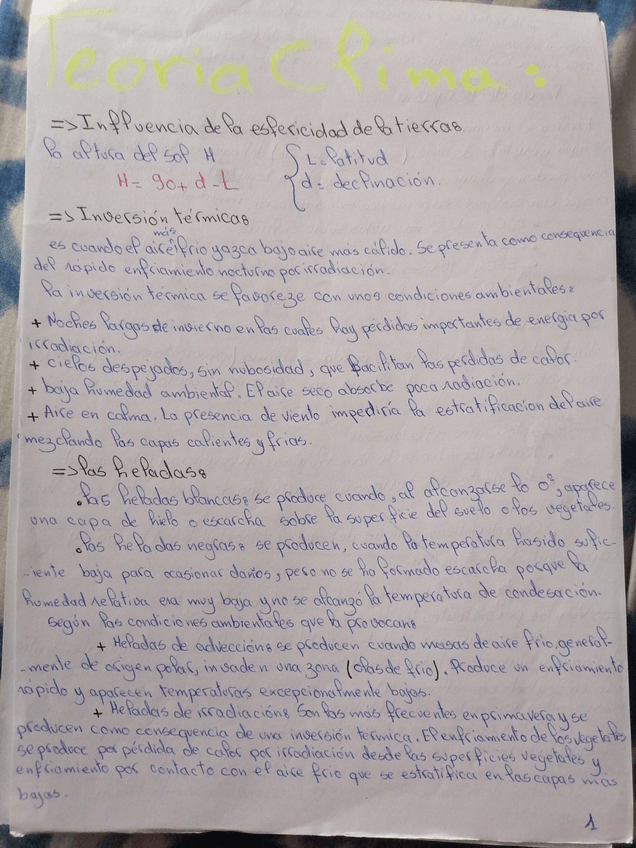 Teoria Clima:
=> Influencia de la esfericidad de la tierra:
la altura del sol H
H= 90+ d -L
L=latitud
d= declinación.
=> Inversión térmica:
más
es cuando el aire frio yazca bajo aire más cálido. Se presenta como consequencia
del rápido enfriamiento nocturno por irradiación.
la inversión térmica se favoreze con unos condiciones ambientales:
+ Noches largas de invierno en las cuales hay pérdidas importantes de energía por
irradiación.
+ cielos despejados, sin nubosidad, que facilitan las perdidas de calor.
+ baja humedad ambiental. El aire seco absorbe poca radiación.
+ Aire en calma. La presencia de viento impediría la estratificacion del aire
mezclando las capas calientes y frias.
=> las heladas:
.las heladas blancas: se produce cuando, al alcanzarse lo 0º, aparece
una capa de hielo o escarcha sobre la superficie del suelo o los vegetales.
.las heladas negras: se producen, cuando la temperatura ha sido sufic-
-iente baja para ocasionar daños, pero no se ha formado escarcha porque la
humedad relativa era muy baja y no se alcanzó la temperatura de condesación.
según las condiciones ambientales que la provocan:
+ Heladas de advección: se producen cuando masas de aire frio, general-
-mente de origen polar, invaden una zona (olas de frio). Produce un enfriamiento
rápido y aparecen temperaturas excepcionalmente bajas.
+ Heladas de irradiación: Son las más frecuentes en primavera y se
producen como consequencia de una inversión térmica. El enfriamiento de los vegetales
se produce por pérdida de calor por irradiación desde las superficies vegetales y
enfriamiento por contacto con el aire frio que se estratifica en las capas más
bajas.
1